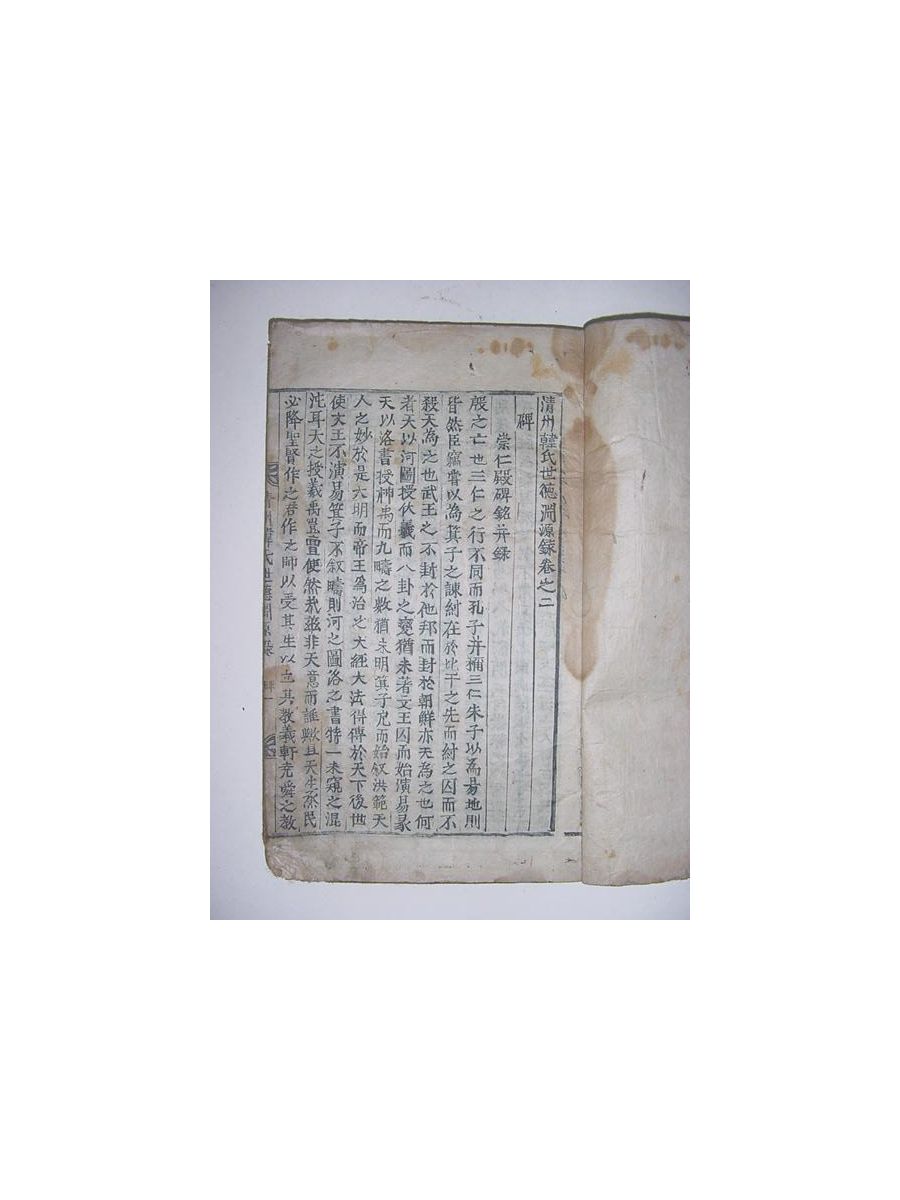 清州韓氏世德淵源錄卷之二
碑
崇仁殿碑銘并錄
殷之亡也三仁之行不同而孔子并稱三仁朱子以爲易地則
皆然臣竊嘗以爲箕子之諫紂在於比干之先而紂之囚而不
殺天爲之也武王之不封於他邦而封於朝鮮亦天爲之也何
者天以河圖授伏羲而八卦之變猶未著文王囚而始演易彖
天以洛書授神禹而九疇之數猶未明箕子而始叙洪範天
人之妙於是大明而帝王爲治之大經大法得傳於天下後世
使文王不演易箕子不叙疇則河之圖洛之書特一未窺之混
沌耳天之授羲禹豈亶使然哉玆非天意而誰歟且天生烝民
必降聖賢作之君作之師以受其生以立其教羲軒堯舜之教
清州韓氏世德淵源錄 碑一